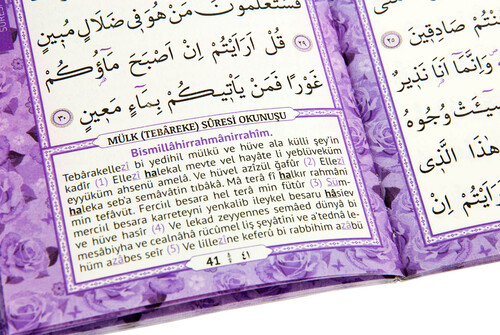 فَسَتَعْلَمُونَ مَنْ هُوَ فِي ضَلَالٍ مُبِينٍ
﴿٢٩﴾ قُلْ اَرَاَيْتُمْ اِنْ اَصْبَحَ مَٓاؤُ۬كُمْ
غَوْرًا فَمَنْ يَأْتِيكُمْ بِمَٓاءٍ مَعِينٍ ﴿٣٠﴾
MÜLK (TEBÂREKE) SÛRESİ OKUNUŞU
Bismillâhirrahmânirrahîm.
Tebârakellezî bi yedihil mülkü ve hüve ala külli şey'in
kadîr (1) Ellezî halekal mevte vel hayâte li yeblüveküm
eyyüküm ahsenü amelâ. Ve hüvel azîzül ğafûr (2) Ellezî
haleka seb'a semâvâtin tıbâkâ. Mâ terâ fî halkır rahmâni
min tefâvüt. Ferciıl besara hel terâ min fütûr (3) Süm-
merciıl besara karreteyni yenkalib ileykel besaru hâsiev
ve hüve hasîr (4) Ve lekad zeyyennes semâed dünyâ bi
mesâbiyha ve cealnâhâ rücûmel liş şeyâtîni ve a'tednâ le-
hüm azâbes seîr (5) Ve lillezîne keferû bi rabbihim azâbü
41 ٤١
صَادِقِينَ ﴿٢٥﴾
وَاِنَّمَٓا اَنَا نَذِيرٌ
وُجُوهُ
هٰذَا الَّذِي
اِنْ